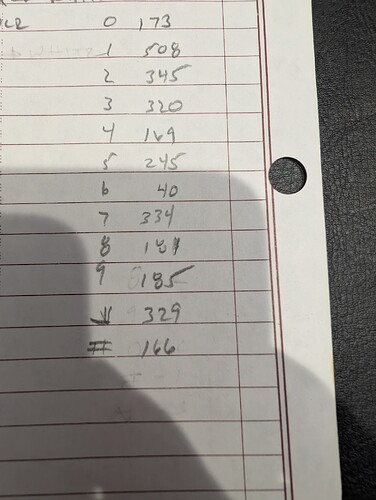 0 173
1 508
2 345
3 320
4 169
5 245
6 40
7 334
8 187
9 185
329
# 166